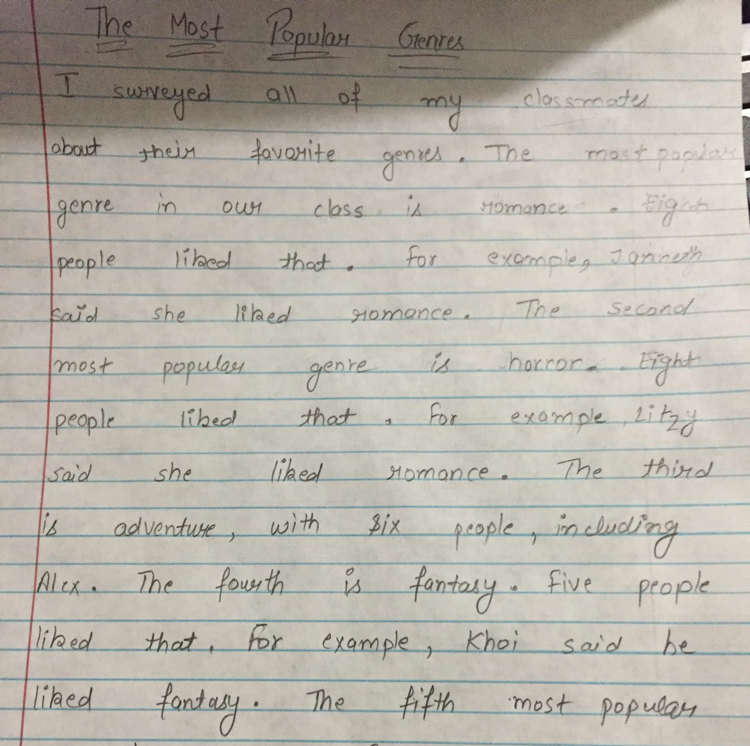 The Most Popular Genres
I surveyed all of my classmates
about their favorite genres. The most popular
genre in our class is romance. Eight
people liked that. For example, Janneth
said she liked romance. The second
most popular genre is horror. Eight
people liked that. For example, Litzy
said she liked romance. The third
is adventure, with six people, including
Alex. The fourth is fantasy. Five people
liked that. For example, Khoi said he
liked fantasy. The fifth most popular